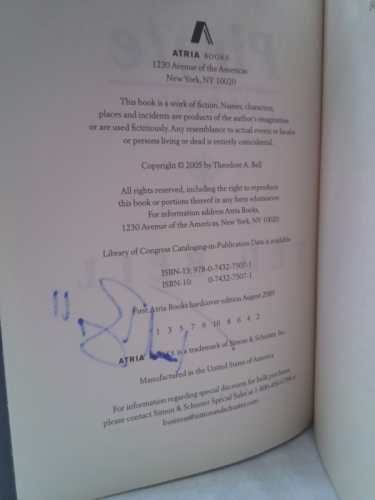 Pirate
ATRIA BOOKS
1230 Avenue of the Americas
New York, NY 10020
This book is a work of fiction. Names, characters,
places and incidents are products of the author's imagination
or are used fictitiously. Any resemblance to actual events or locales
or persons living or dead is entirely coincidental.
Copyright © 2005 by Theodore A. Bell
All rights reserved, including the right to reproduce
this book or portions thereof in any form whatsoever.
For information address Atria Books,
1230 Avenue of the Americas, New York, NY 10020
Library of Congress Cataloging-in-Publication Data is available.
ISBN-13: 978-0-7432-7507-1
ISBN-10: 0-7432-7507-1
First Atria Books hardcover edition August 2005
1 3 5 7 9 10 8 6 4 2
ATRIA BOOKS is a trademark of Simon & Schuster, Inc.
Manufactured in the United States of America
For information regarding special discounts for bulk purchases,
please contact Simon & Schuster Special Sales at 1-800-456-6798 or
business@simonandschuster.com.